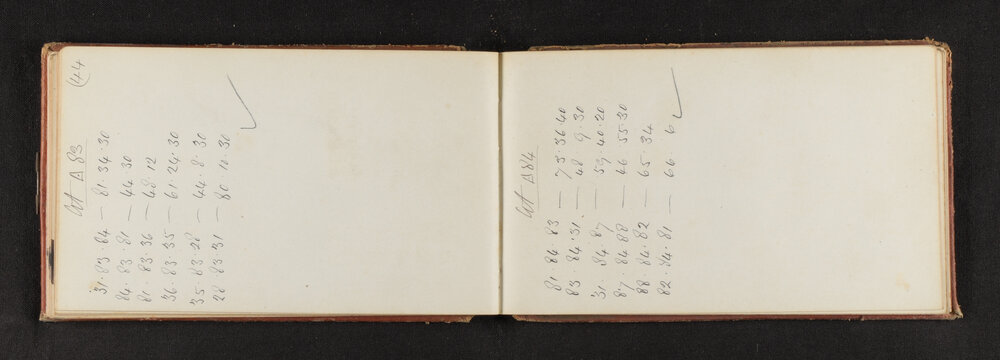 (44
At Δ 83
31.83.84 — 81.34.30
84.83.81 — 44.30
81.83.36 — 48.12
36.83.35 — 61.24.30
35.83.28 — 44.8.30
28.83.31 — 80.10.30
At Δ 84
81.84.83 — 73.36.40
83.84.31 — 48.9.30
31.84.87 — 59.40.20
87.84.88 — 46.55.30
88.84.82 — 65.34
82.84.81 — 66.6